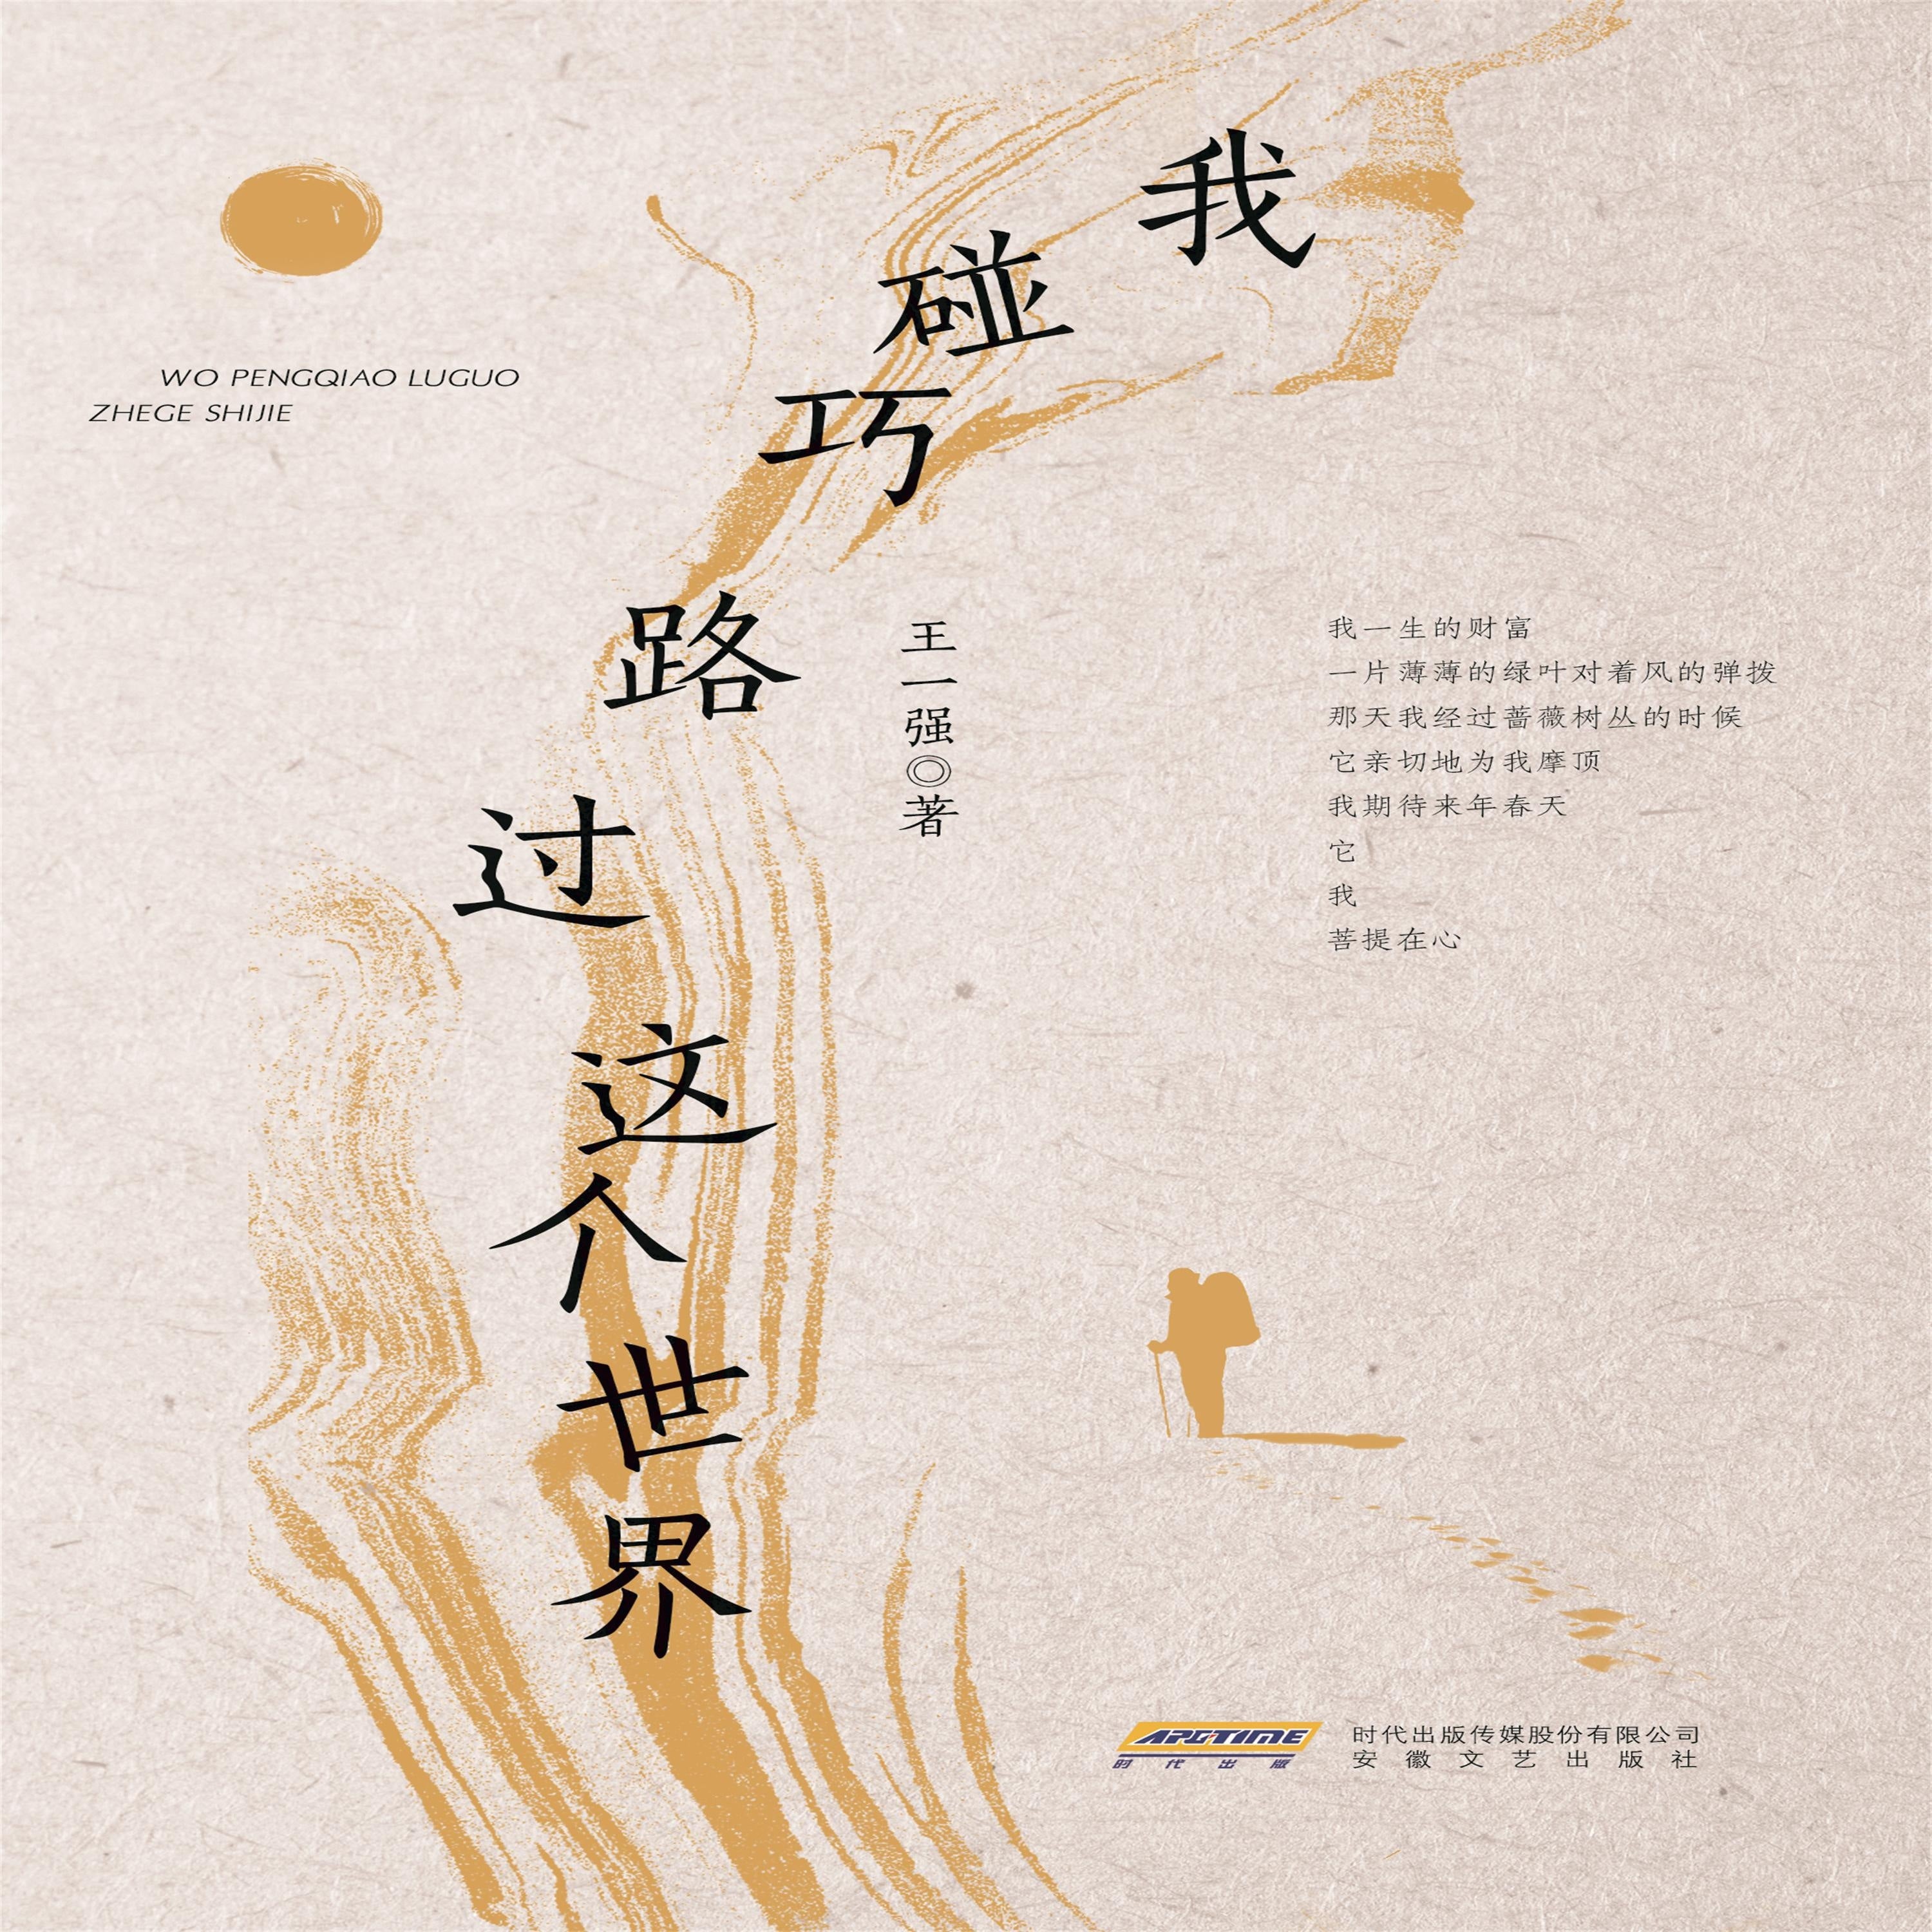 我碰巧路过这个世界
WO PENGQIAO LUGUO
ZHEGE SHIJIE
王一强◎著
我一生的财富
一片薄薄的绿叶对着风的弹拨
那天我经过蔷薇树丛的时候
它亲切地为我摩顶
我期待来年春天
它
我
菩提在心
APGTIME
时代出版
时代出版传媒股份有限公司
安徽文艺出版社